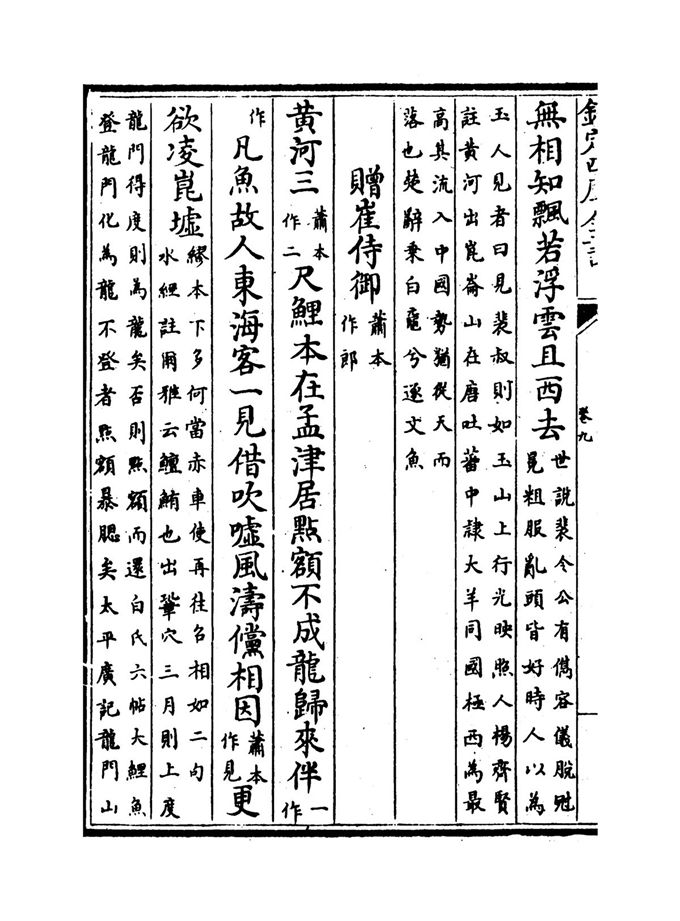 欽定四庫全書
卷九
無相知飄若浮雲且西去世說裴令公有儁容儀脫冠
冕粗服亂頭皆好時人以為
玉人見者曰見裴叔則如玉山上行光映照人楊齊賢
註黃河出崑崙山在唐吐蕃中隸大羊同國極西為最
高其流入中國勢猶從天而
落也楚辭乘白黿兮逐文魚
贈崔侍御蕭本
作郎
黃河三蕭本
作二尺鯉本在孟津居點額不成龍歸來伴一
作
凡魚故人東海客一見借吹噓風濤儻相因蕭本
作見更
欲凌崑墟繆本下多何當赤車使再往召相如二句
水經註爾雅云鱣鮪也出鞏穴三月則上度
龍門得度則為龍矣否則點額而還白氏六帖大鯉魚
登龍門化為龍不登者點額暴腮矣太平廣記龍門山